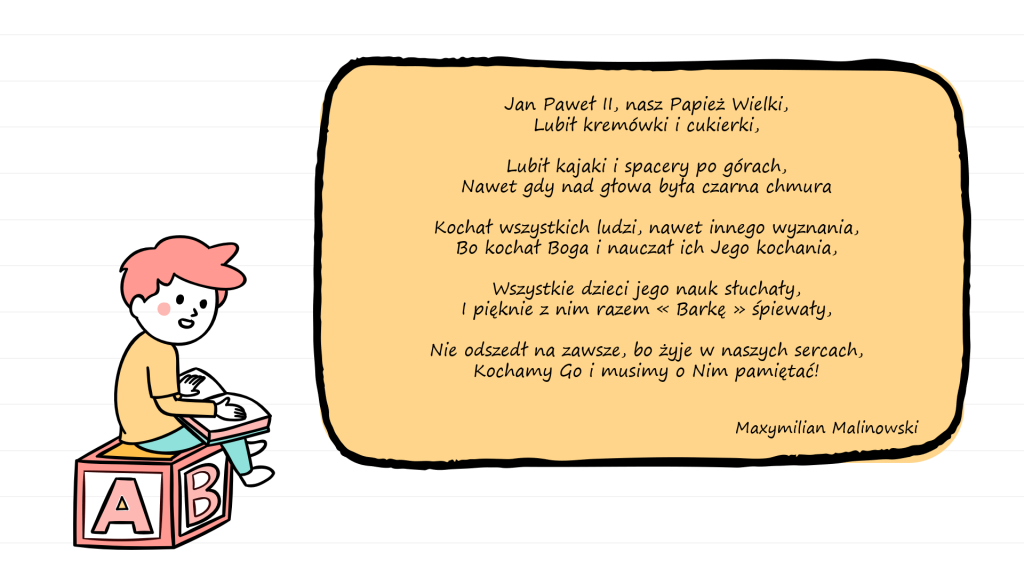 Jan Paweł II, nasz Papież Wielki,
Lubił kremówki i cukierki,
Lubił kajaki i spacery po górach,
Nawet gdy nad głowa była czarna chmura
Kochał wszystkich ludzi, nawet innego wyznania,
Bo kochał Boga i nauczał ich Jego kochania,
Wszystkie dzieci jego nauk słuchały,
I pięknie z nim razem « Barkę » śpiewały,
Nie odszedł na zawsze, bo żyje w naszych sercach,
Kochamy Go i musimy o Nim pamiętać!
Maxymilian Malinowski
A B